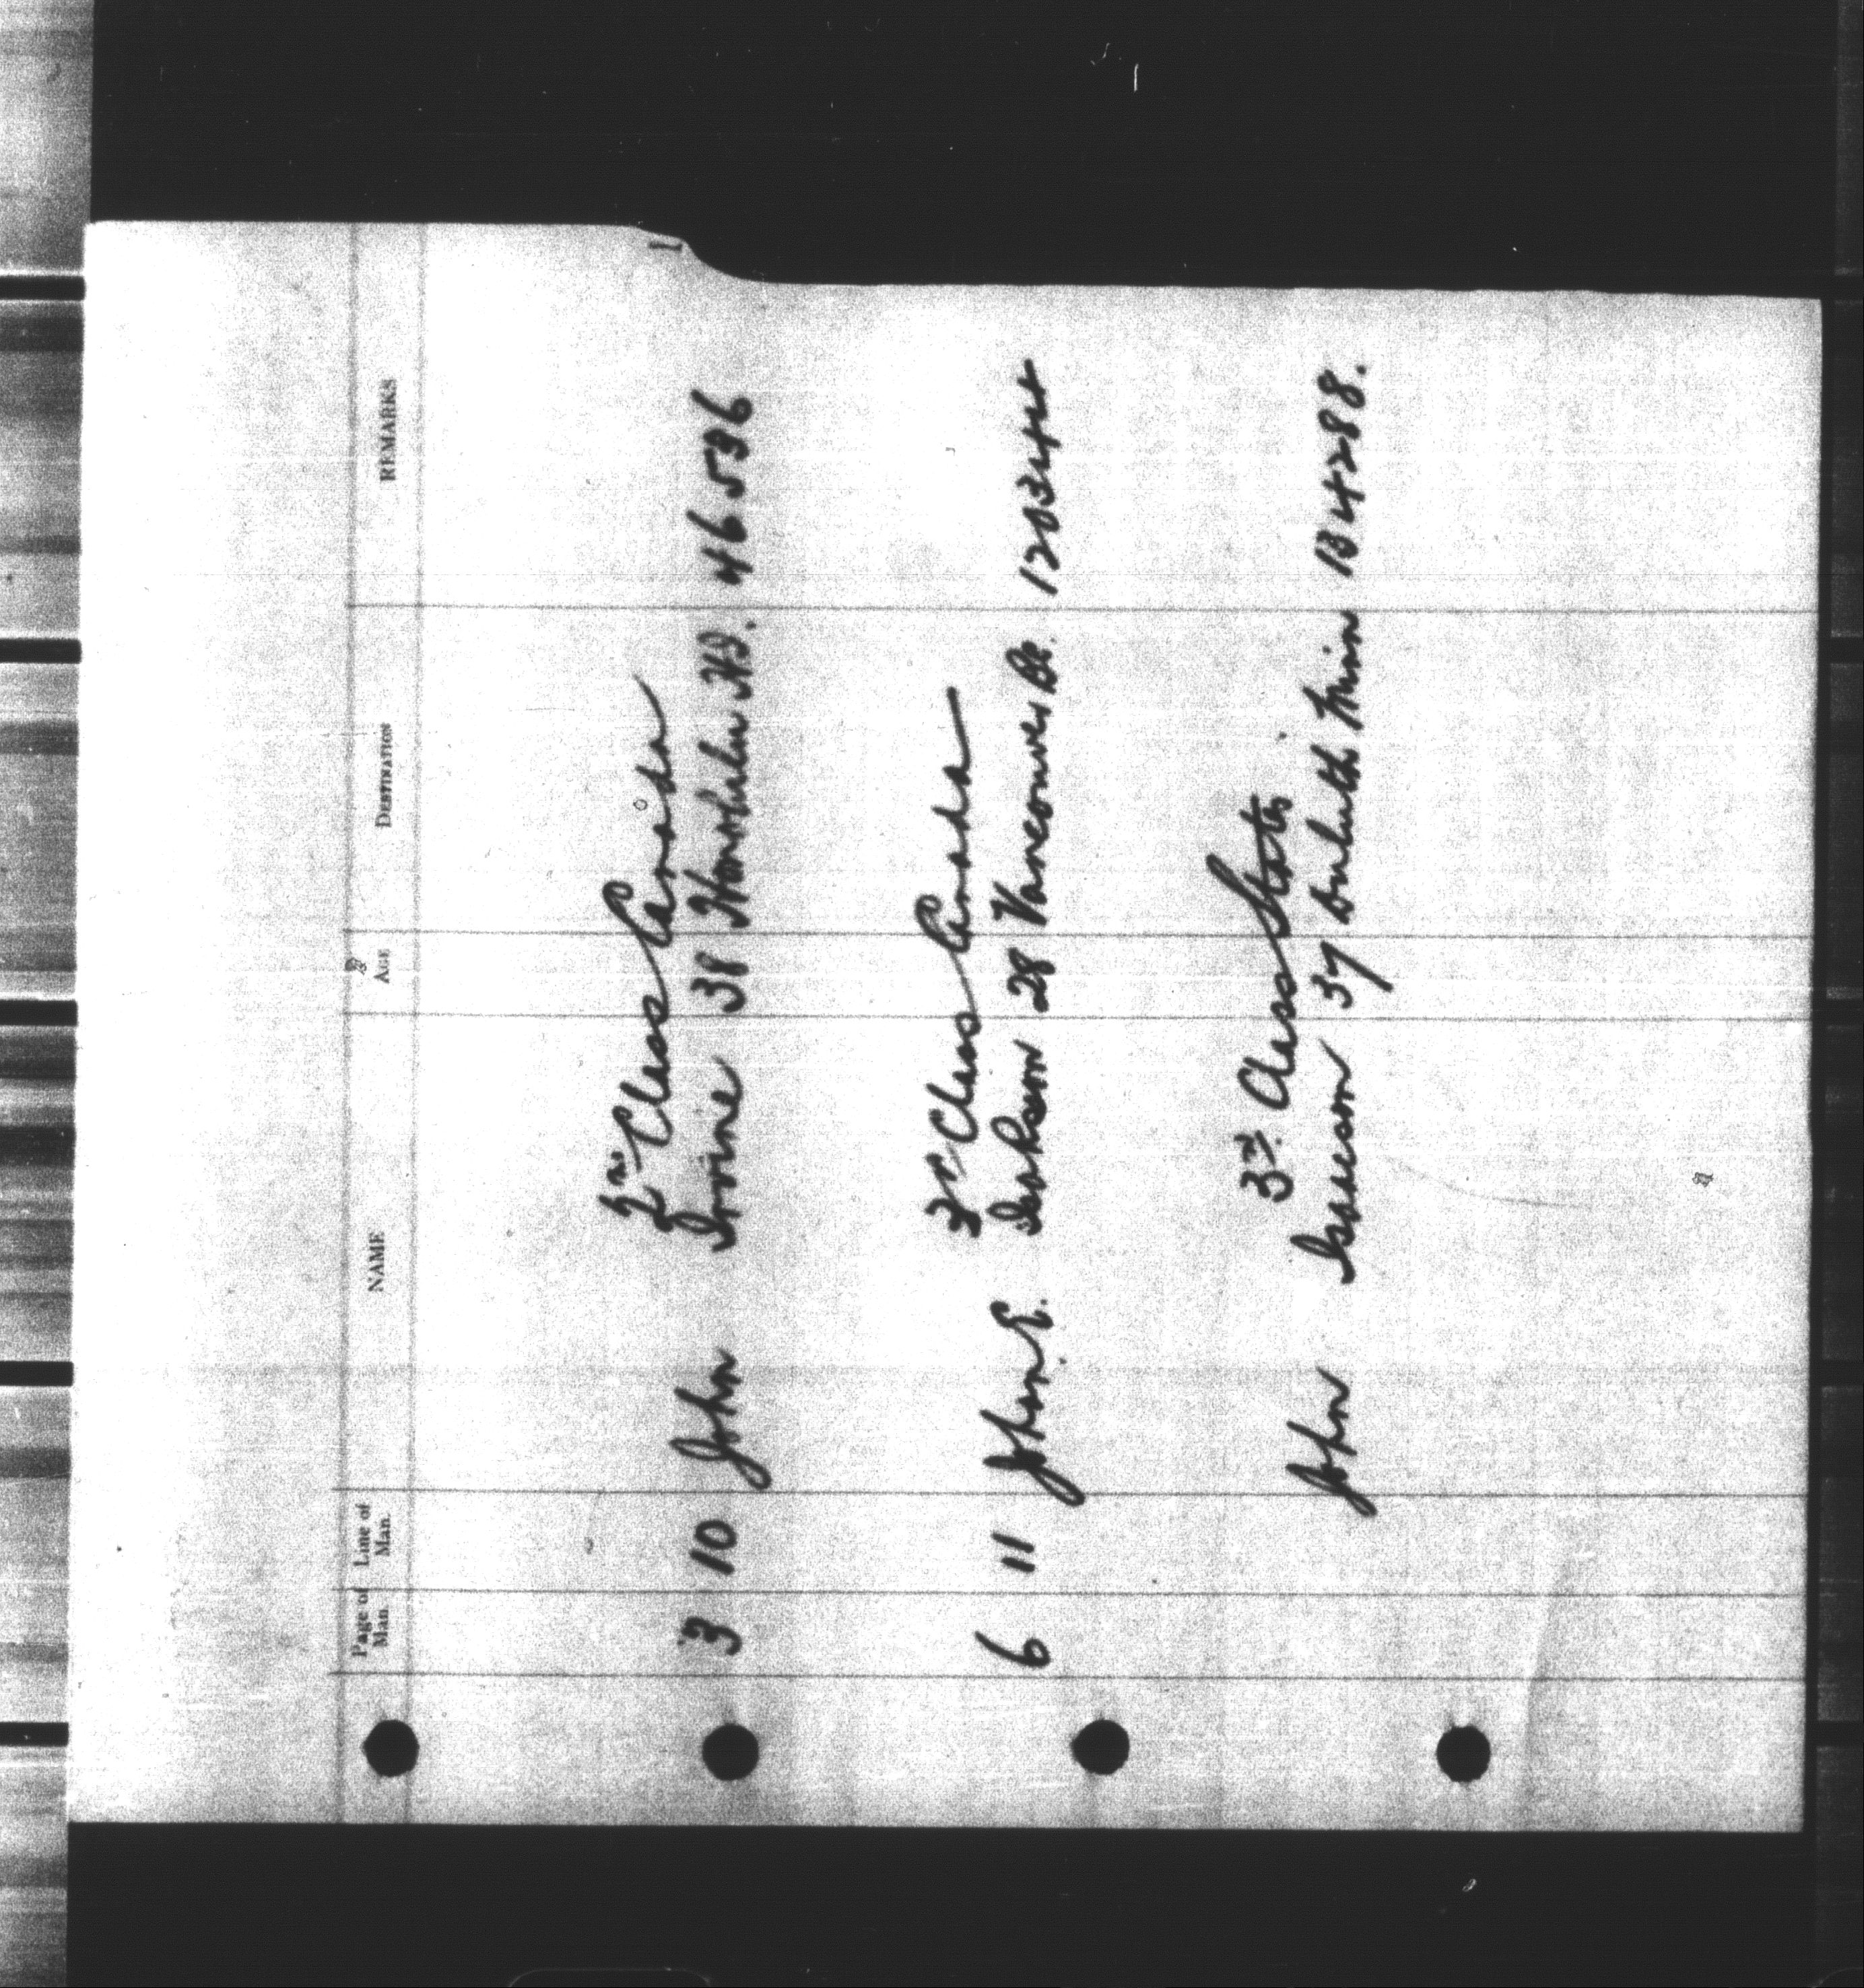 I
Page of Man. Line of Man. NAME AGE DESTINATION REMARKS
2nd Class Canada
3 10 John Irvine 38 Honolulu H.I. 46536
3rd Class Canada
6 11 John E. Isakson 28 Vancouver Bc. 120344
3rd Class States
John Isaacson 37 Duluth Minn B4288.